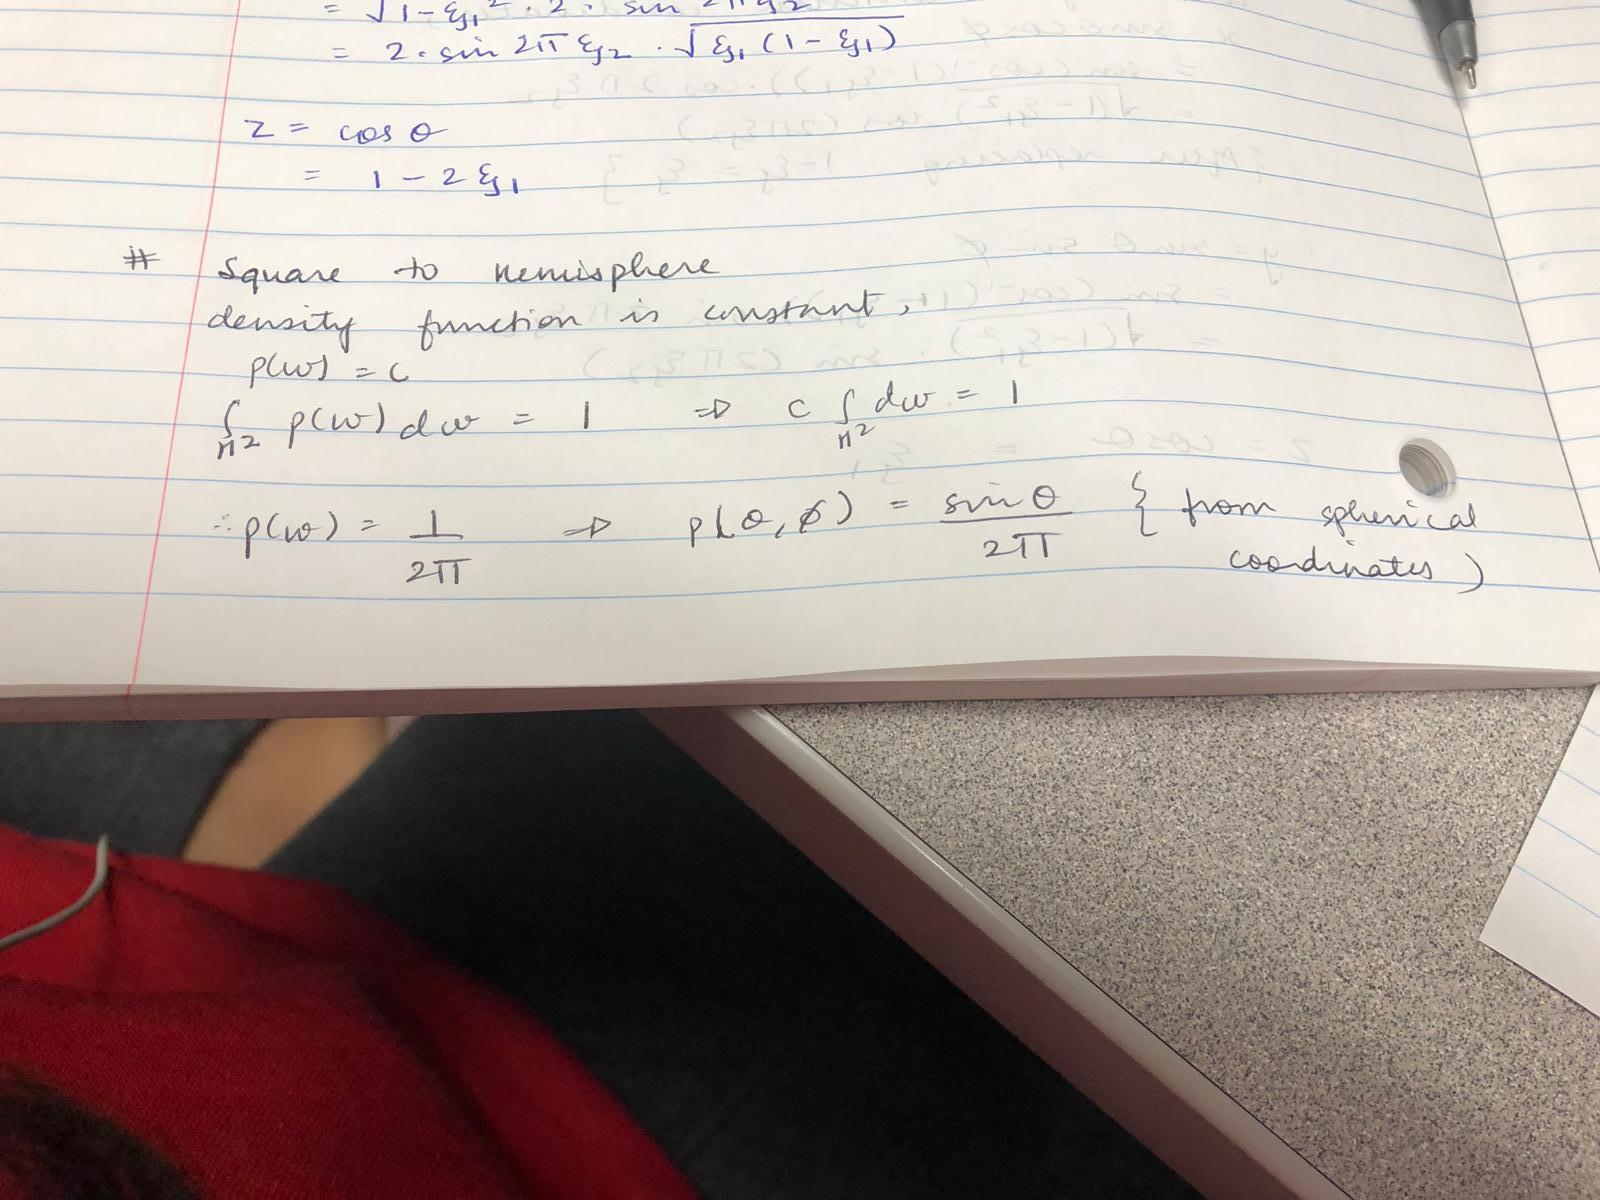 = √1-ξ₁² · 2 · sin 2πξ₂
= 2 · sin 2π ξ₂ · √ξ₁ (1 - ξ₁)
z = cos θ
= 1 - 2 ξ₁
# Square to hemisphere
density function is constant,
p(ω) = c
∫_H² p(ω) dω = 1 ⇒ c ∫_H² dω = 1
∴ p(ω) = 1/2π ⇒ p(θ, ϕ) = sin θ/2π { from spherical
coordinates )